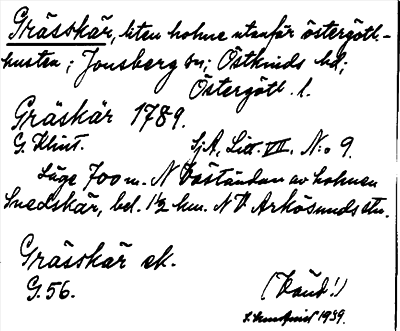 Grässkär, liten holme utanför östergötl.-
kusten; Jonsberg sn; Östkinds hd;
Östergötl. l.
Gräskär 1789.
G. Klint. SjA, Litt. VII. N:o 9.
Läge 700 m. N Väständan av holmen
Snedskär, bel. 1½ km. NV Arkösunds stn.
Grässkär ek.
G. 56. (Vänd!)
1939.